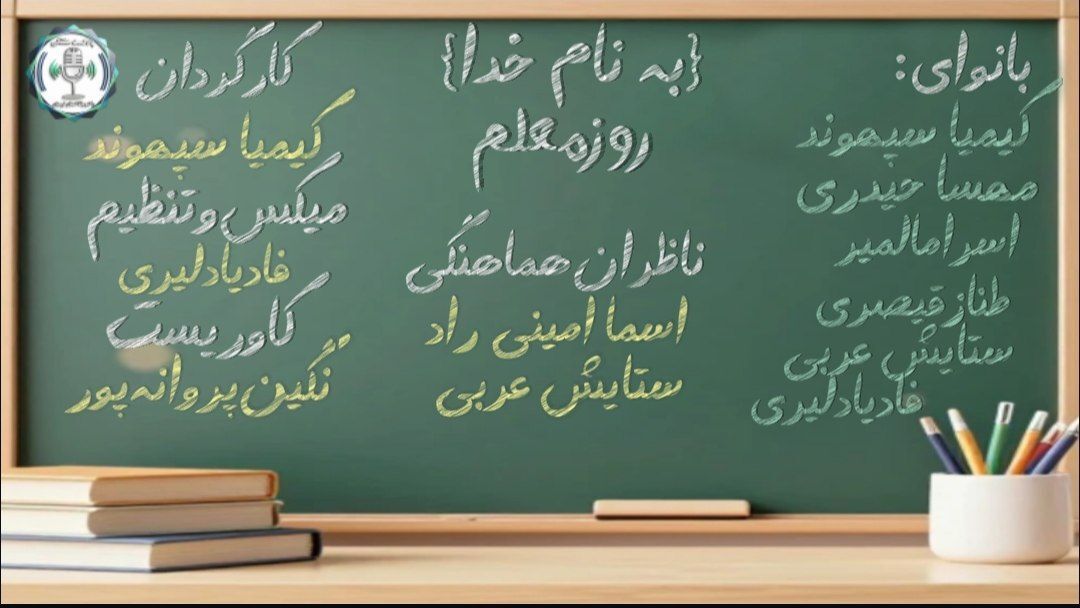 بانوای:
کیمیا سپهوند
مهسا حیدری
اسرا مالمیر
طناز قیصری
ستایش عربی
فادیا دلیری
{به نام خدا}
روز معلم
ناظران هماهنگی
اسما امینی راد
ستایش عربی
کارگردان
کیمیا سپهوند
میکس و تنظیم
فادیا دلیری
کاوریست
نگین پروانه پور